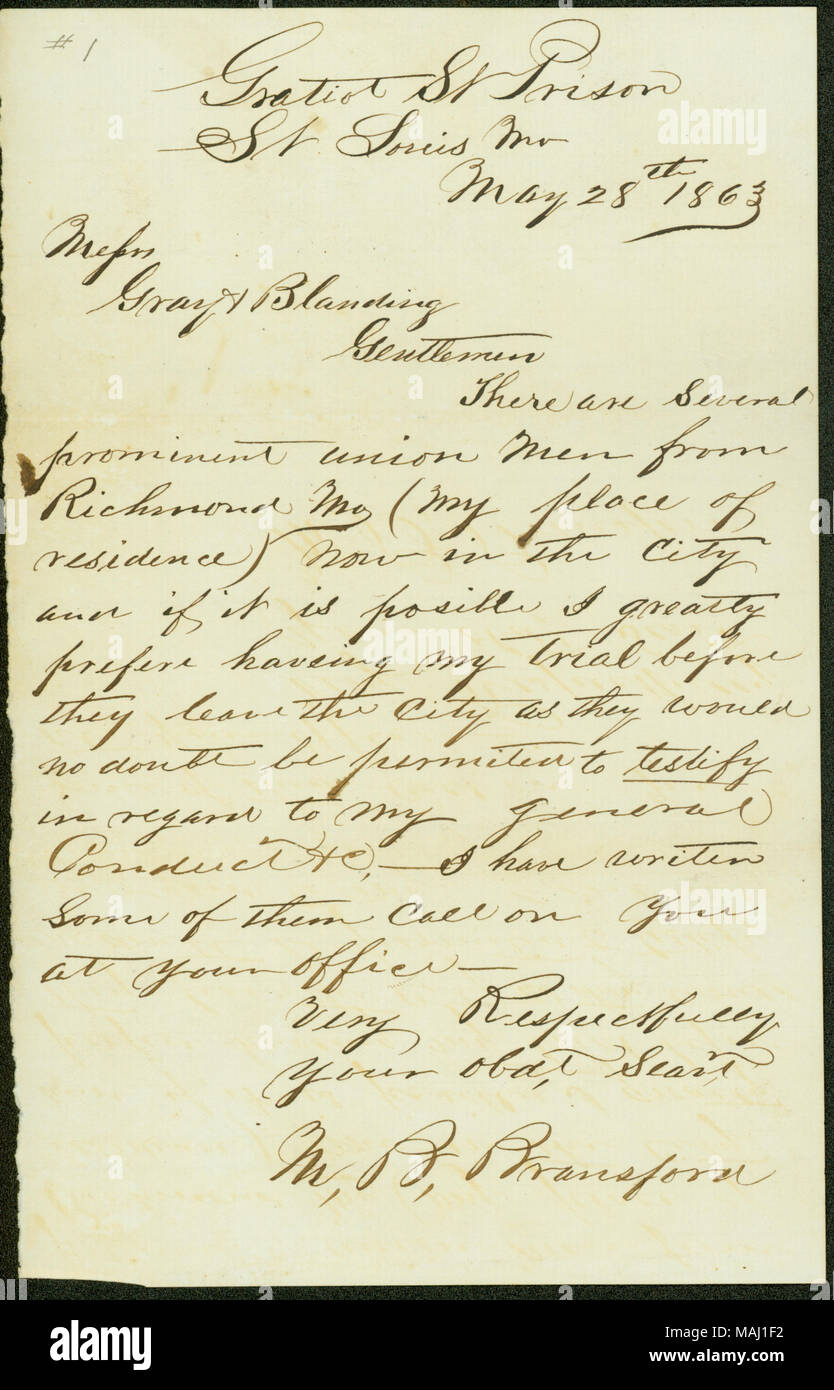 # 1
Gratiot St Prison
St Louis Mo
May 28th 1863
Messrs
Gray & Blanding
Gentlemen
There are several
prominent union Men from
Richmond Mo (My place of
residence) now in the City
and if it is posille I greatly
prefere haveing my Trial before
they leave the City as they would
no doubt be permited to testify
in regard to my general
Conduct &c, — I have writen
Some of them Call on You
at your office —
Very Respectfully
Your obdt, Seart,
M, B, Bransford
alamy
Image ID: MAJ1F2
www.alamy.com